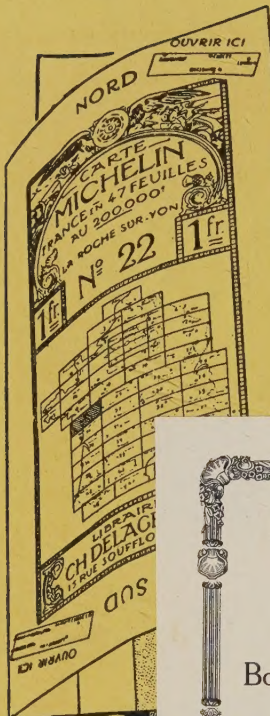 OUVRIR ICI
NORD
CARTE
MICHELIN
FRANCE EN 47 FEUILLES
AU 200.000e
LA ROCHE-SUR-YON
1 fr. No 22 1 fr.
LIBRAIR
CH DELAG
15 RUE SOUFFLO
SUD
OUVRIR ICI
Bo